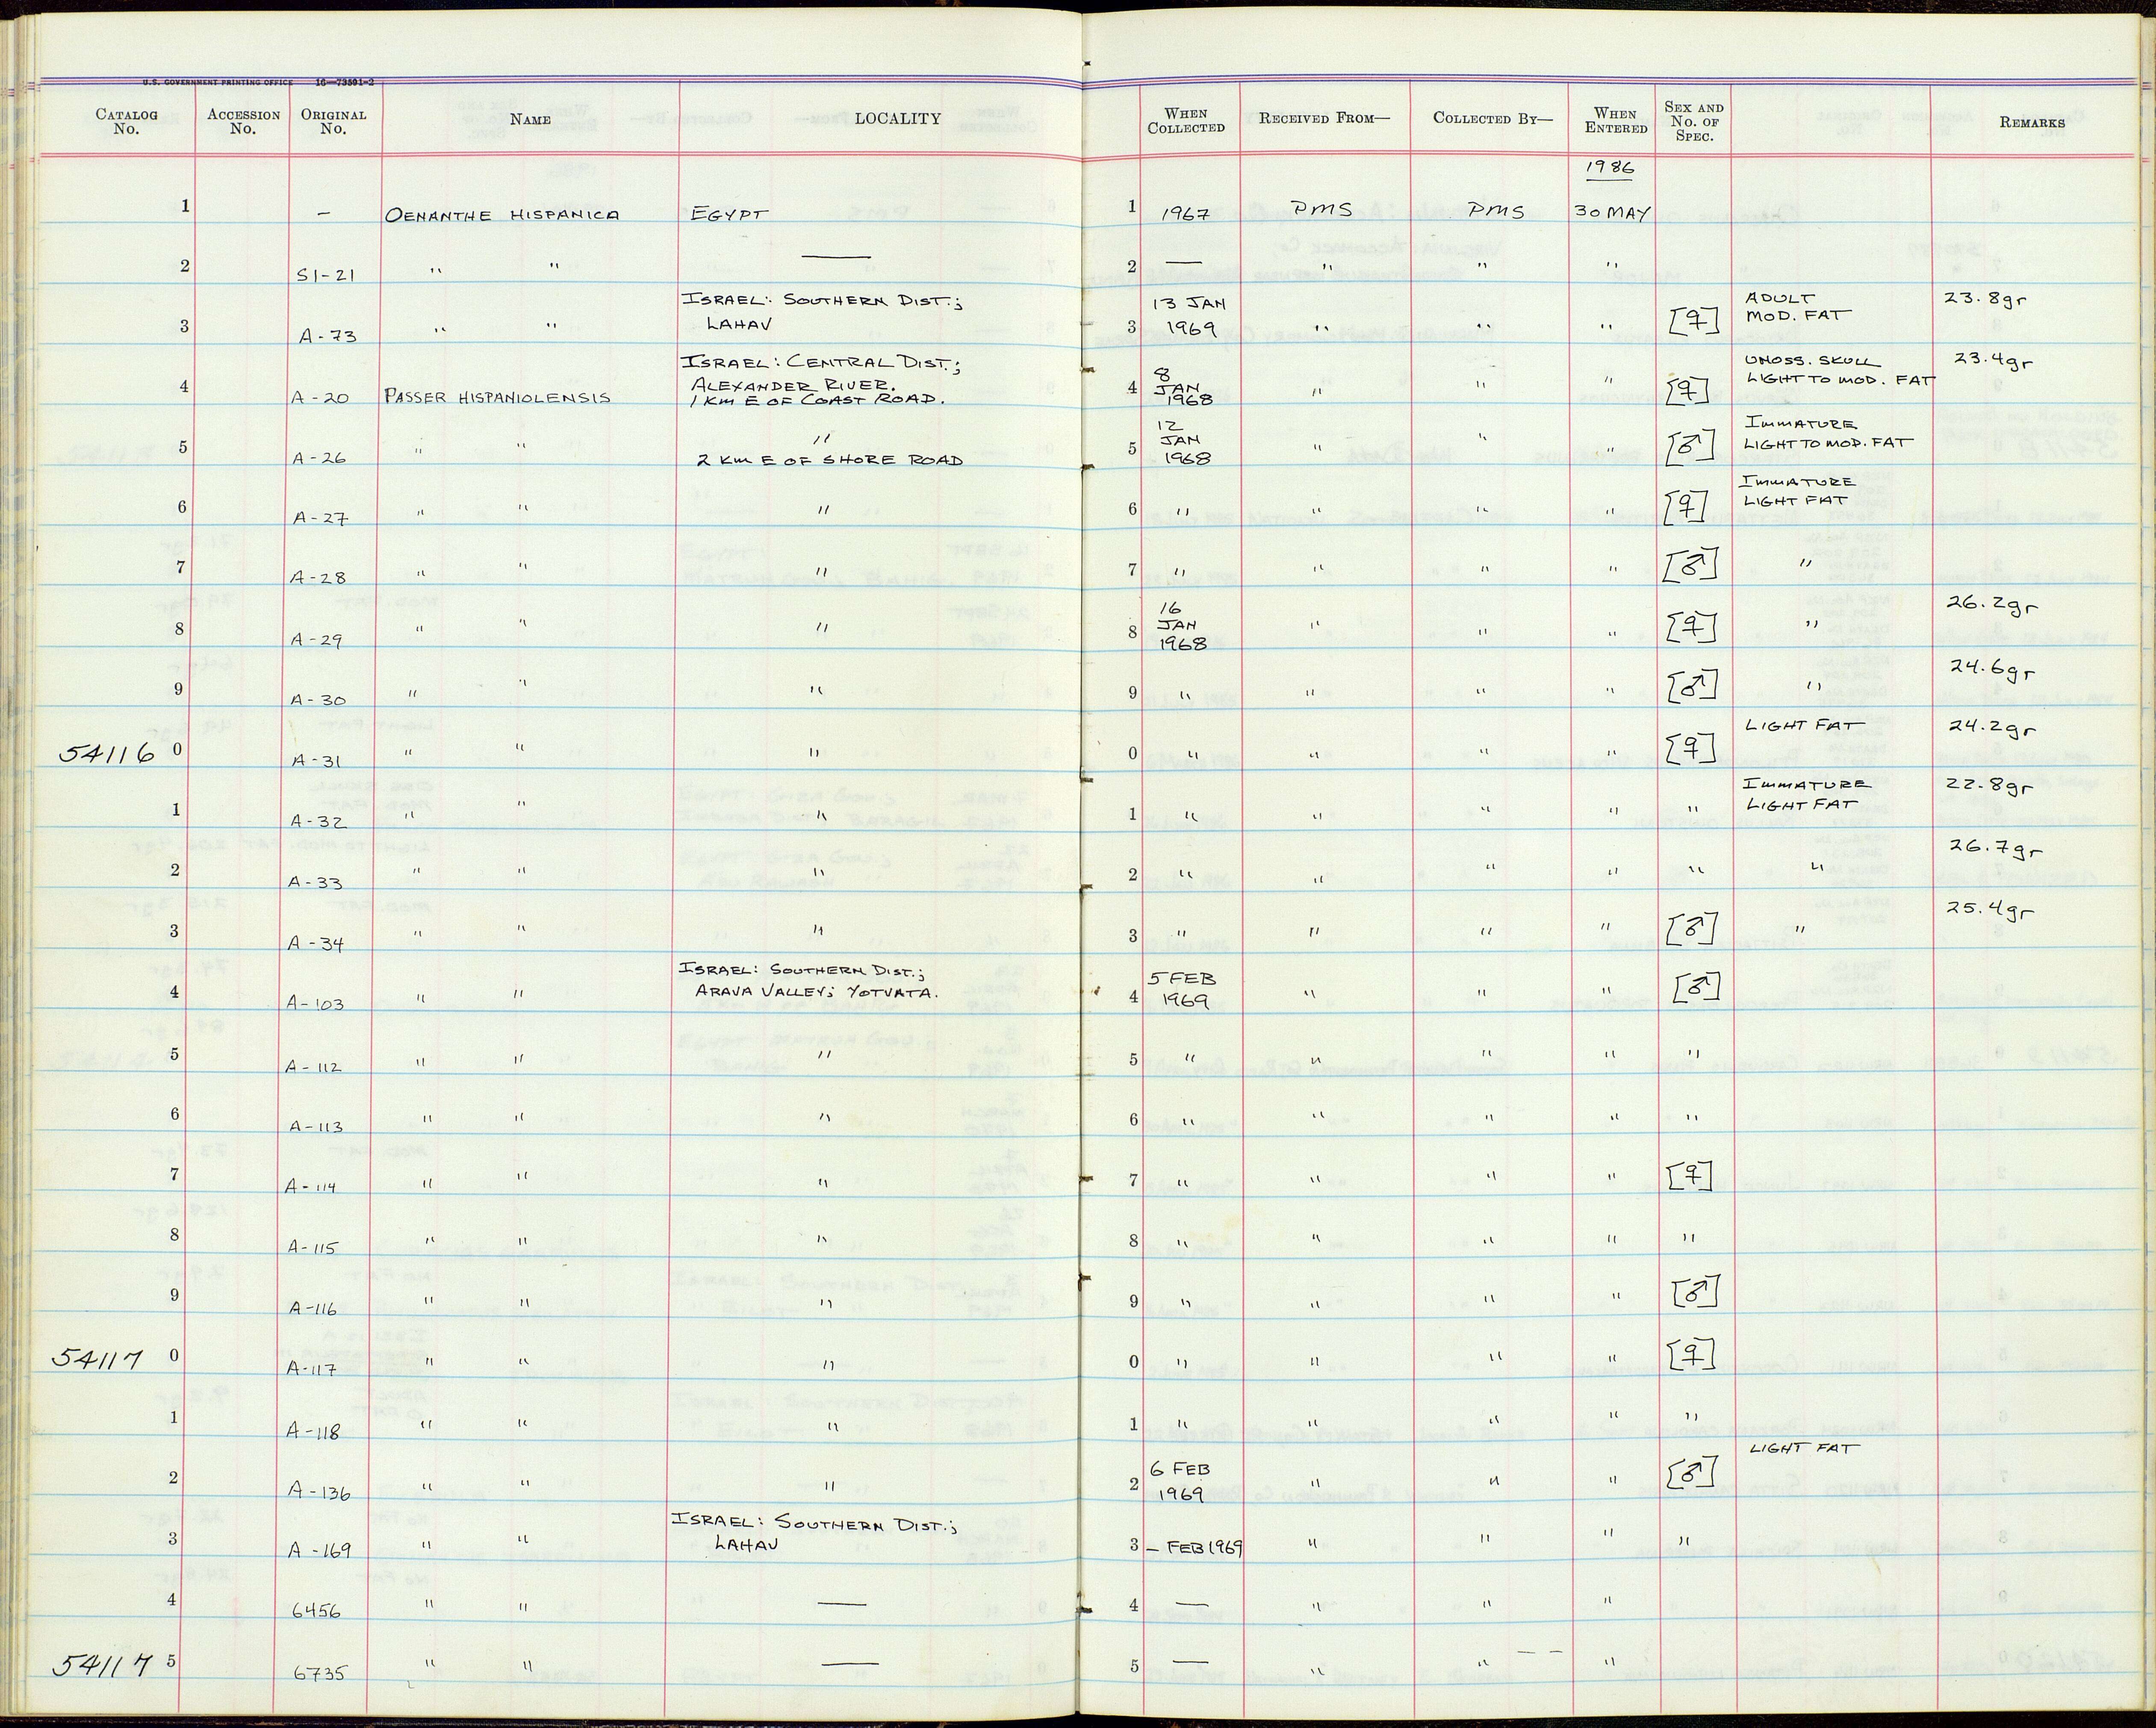 U.S. GOVERNMENT PRINTING OFFICE 16—73591-2
CATALOG No. ACCESSION No. ORIGINAL No. NAME LOCALITY WHEN COLLECTED RECEIVED FROM— COLLECTED BY— WHEN ENTERED SEX AND No. OF SPEC. REMARKS
1986
1 – OENANTHE HISPANICA EGYPT 1 1967 PMS PMS 30 MAY
2 S1-21 " " — 2 — " " "
ISRAEL: SOUTHERN DIST.; 13 JAN ADULT 23.8gr
3 A-73 " " LAHAV 3 1969 " " " [♀] MOD. FAT
ISRAEL: CENTRAL DIST.; 8 UNOSS. SKULL 23.4gr
4 A-20 PASSER HISPANIOLENSIS ALEXANDER RIVER. 4 JAN " " " [♀] LIGHT TO MOD. FAT
1 KM E OF COAST ROAD. 1968
" 12 IMMATURE
5 A-26 " " 2 KM E OF SHORE ROAD 5 JAN " " " [♂] LIGHT TO MOD. FAT
1968
IMMATURE
6 A-27 " " " 6 " " " " [♀] LIGHT FAT
7 A-28 " " " 7 " " " " [♂] "
16 26.2gr
8 A-29 " " " 8 JAN " " " [♀] "
1968
9 A-30 " " " 9 " " " " [♂] " 24.6gr
54116 0 A-31 " " " 0 " " " " [♀] LIGHT FAT 24.2gr
IMMATURE 22.8gr
1 A-32 " " " 1 " " " " " LIGHT FAT
2 A-33 " " " 2 " " " " " " 26.7gr
3 A-34 " " " 3 " " " " [♂] " 25.4gr
ISRAEL: SOUTHERN DIST.; 5 FEB
4 A-103 " " ARAVA VALLEY; YOTVATA. 4 1969 " " " [♂]
5 A-112 " " " 5 " " " " "
6 A-113 " " " 6 " " " " "
7 A-114 " " " 7 " " " " [♀]
8 A-115 " " " 8 " " " " "
9 A-116 " " " 9 " " " " [♂]
54117 0 A-117 " " " 0 " " " " [♀]
1 A-118 " " " 1 " " " " "
6 FEB LIGHT FAT
2 A-136 " " " 2 1969 " " " [♂]
ISRAEL: SOUTHERN DIST.;
3 A-169 " " LAHAV 3 – FEB 1969 " " " "
4 6456 " " — 4 — " " "
54117 5 6735 " " — 5 — " " – – "